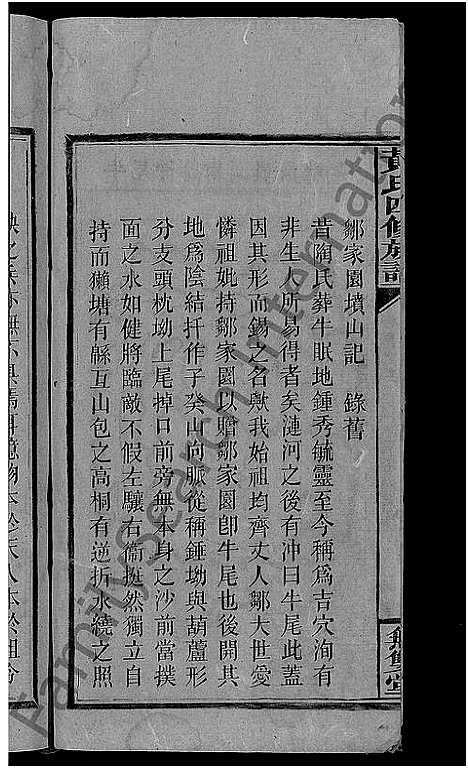 黃氏四修族譜
鄒家園墳山記　錄舊
昔陶氏葬牛眠地鍾秀毓靈至今稱爲吉穴洵有
非生人所易得者矣漣河之後有沖曰牛尾此蓋
因其形而錫之名歟我始祖均齊丈人鄒大世愛
憐祖妣持鄒家園以贈鄒家園卽牛尾也後開其
地爲陰結扦作子癸山向脈從稱錘坳與葫蘆形
分支頭枕坳上尾掉口前旁無本身之沙前當撲
面之水如健將臨敵不假左驤右衞挺然獨立自
持而獺塘有緜亙山包之高桐有逆折水繞之照
無雙堂
FamilySearch International